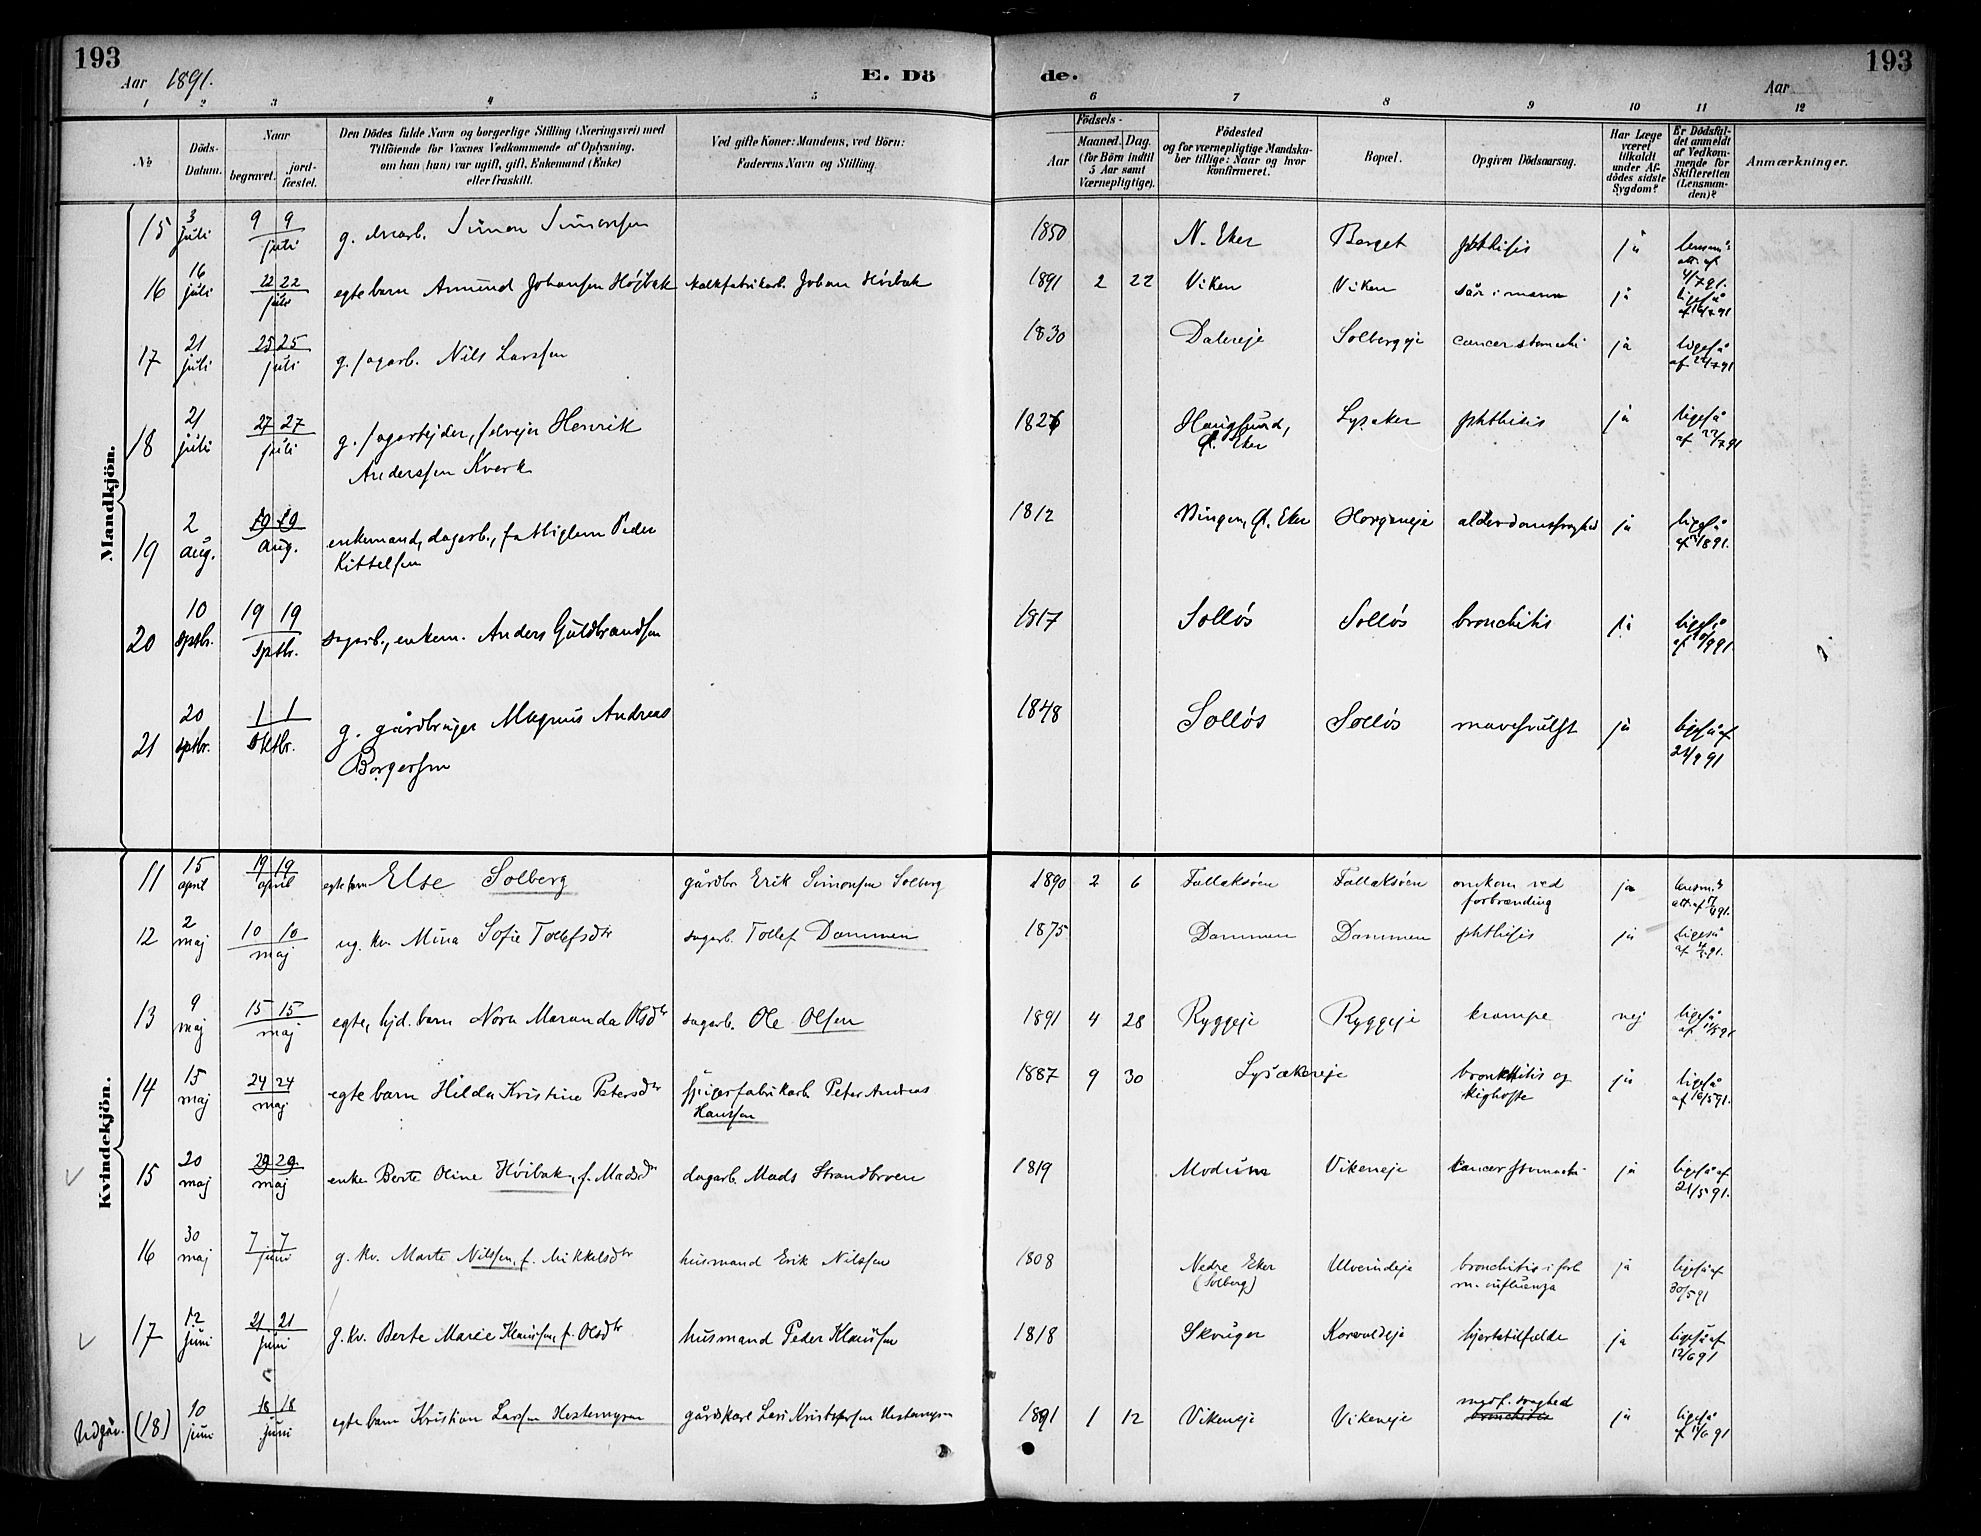 193
Aar 1891.
E. Dö
de.
Aar
193
1 2 3 4 5 6 7 8 9 10 11 12
No
Döds-Datum.
Naar
begravet.
jord-fæstet.
Den Dödes fulde Navn og borgerlige Stilling (Næringsvei) med
Tilföiende for Voxnes Vedkommende af Oplysning,
om han (hun) var ugift, gift, Enkemand (Enke)
eller fraskilt.
Ved gifte Koner: Mandens, ved Börn:
Faderens Navn og Stilling.
Födsels-
Aar
Maaned. Dag.
(for Börn indtil
5 Aar samt
Værnepligtige).
Födested
og for værnepligtige Mandska-
ber tillige: Naar og hvor
konfirmeret.
Bopæl.
Opgiven Dödsaarsag.
Har Læge
været
tilkaldt
under Af-
dödes sidste
Sygdom?
Er Dödsfal-
det anmeldt
af Vedkom-
mende for
Skifteretten
(Lensman-
den)?
Anmærkninger.
Mandkjön.
15 3 juli 9 9 juli g. Simon Simensen 1850 N. Eker Berget phthisis ja lensm's att. af 4/7 91.
16 16 juli 22 22 juli egte barn Amund Johansen Højbak Johan Høibak 1891 2 22 Viken Viken sår i maven ja ligeså af 16/7 91
17 21 juli 25 25 juli g. sagarb. Nils Larssen 1830 Dalereje Solbergeje cancer stomachi ja ligeså af 22/7 91
18 21 juli 27 27 juli g. sagarbejder, selvejer Henrik
Anderssen Kverk 1826 Haugsund, Ø. Eker Lysaker phthisis ja ligeså af 22/7 91
19 2 aug. 19 19 aug. enkemand, dagarb., fattiglem Peder
Kittelsen 1812 Bingen, Ø. Eker Horgeneje alderdomssvaghed ja ligeså af 891.
20 10 sptbr. 19 19 sptbr. sagarb., enkem. Anders Guldbrandsen 1817 Solløs Solløs bronchitis ja ligeså af 10/9 91.
21 20 sptbr. 1 1 oktbr. g. gårdbruger Magnus Andreas
Borgersen 1848 Solløs Solløs mavesvulst ja ligeså af 21/9 91
Kvindekjön.
11 15 april 19 19 april egte barn Else Solberg gårdbr. Erik Simonsen Solberg 1890 2 6 Fallaksøen Fallaksøen omkom ved
forbrænding ja lensm.'s att. af
12 2 maj 10 10 maj ug. kv. Mina Sofie Tollefsdtr sagarb. Tollef Dammen 1875 Dammen Dammen phthisis ja ligeså
13 9 maj 15 15 maj egte, hjd. barn Nora Maranda Olsdtr sagarb. Ole Olsen 1891 4 28 Ryggeje Ryggeje krampe nej ligeså
14 15 maj 24 24 maj egte barn Hilda Kristine Petersdtr spigerfabrikarb. Peter Andreas
Hanssen 1887 9 30 Lysakereje bronkhitis og
kighoste ja ligeså af 16/5 91.
15 20 maj 29 29 maj enke Berte Oline Høibak, f. Madsdtr dagarb. Mads Strandbroen 1819 Modum Vikeneje cancer stomachi ja ligeså af 21/5 91.
16 30 maj 7 7 juni g. kv. Marte Nilssen, f. Mikkelsdtr husmand Erik Nilssen 1808 Nedre Eker
(Solberg) Ulverudeje bronchitis i forb
m. influenza ja ligeså af 30/5 91
17 12 juni 21 21 juni g. kv. Berte Marie Klaussen, f. Olsdtr husmand Peder Klaussen 1818 Skruger hjertetilfelde ja ligeså af 12/6 91
Udgår. (18) 10 juni 18 18 juni egte barn Kristian Larssen Hestemyren gårdskarl Lars Kristofersen Hestemyren 1891 1 12 Vikeneje Vikeneje medf. svaghed
bronchitis ja ligeså af 11/6 91